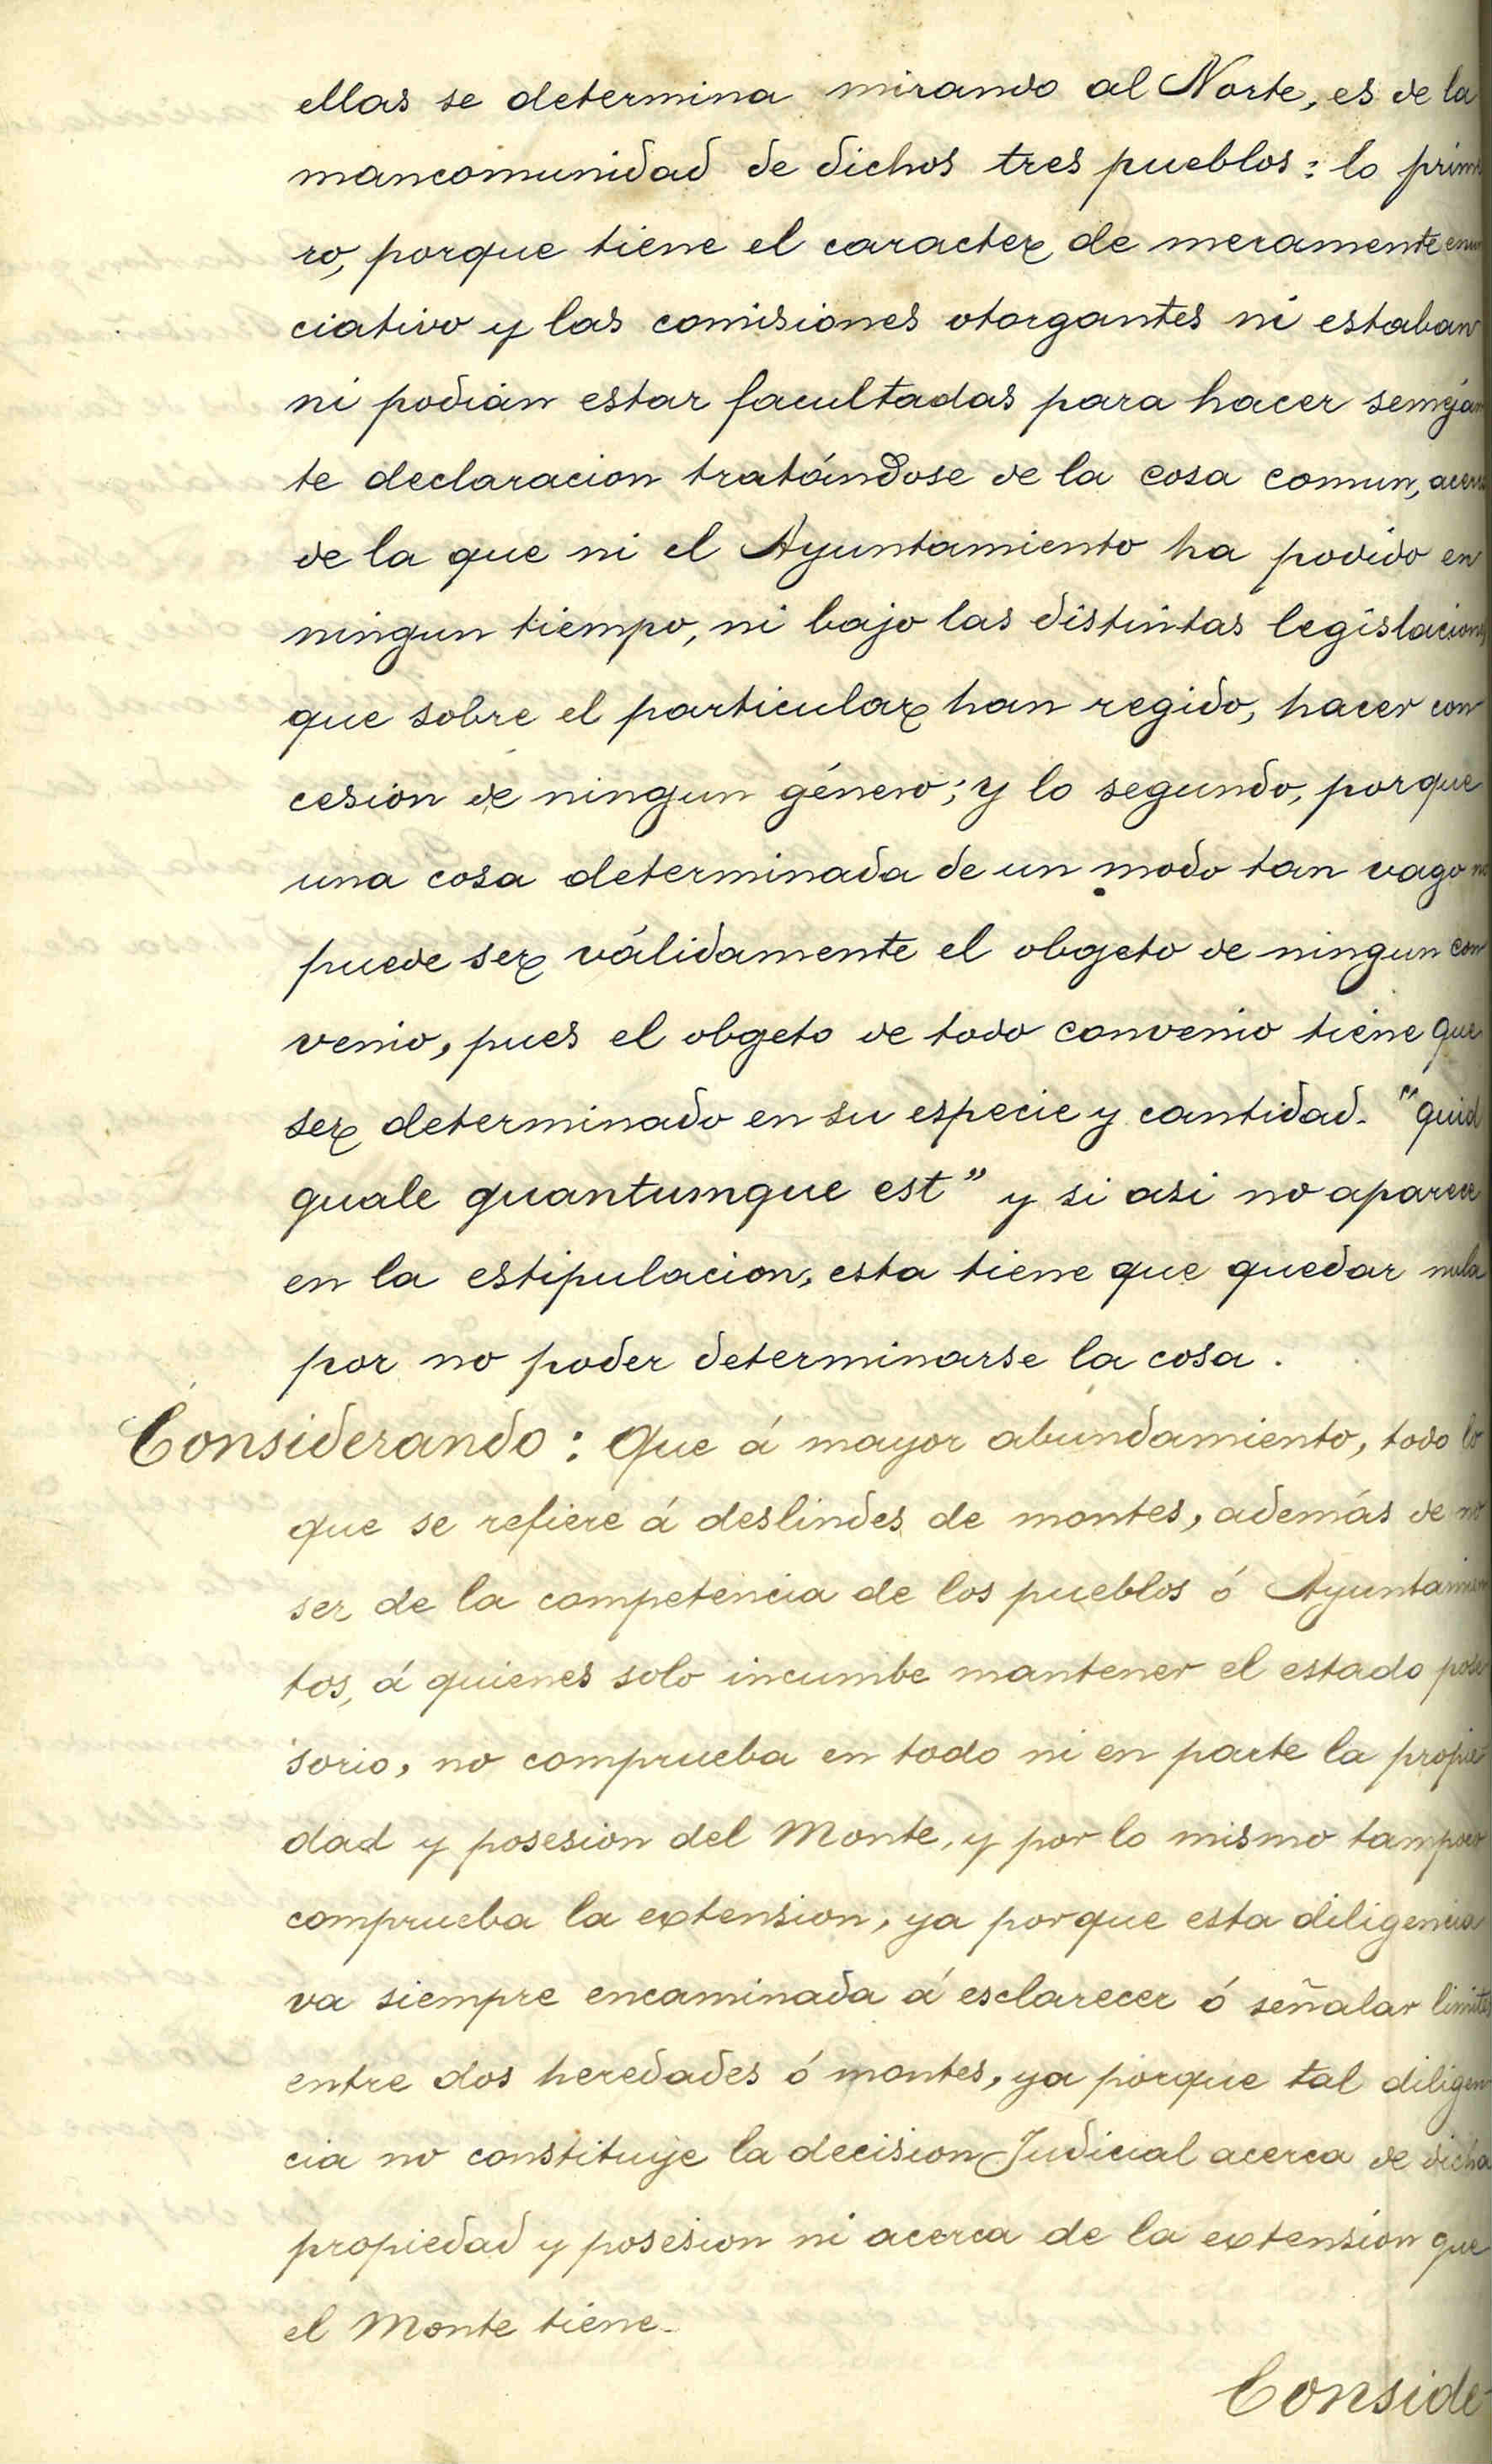 ellas se determina mirando al Norte, es de la
mancomunidad de dichos tres pueblos: lo prime
ro, porque tiene el caracter de meramente enun
ciativo y las comisiones otorgantes ni estaban
ni podian estar facultadas para hacer semejan
te declaracion tratándose de la cosa comun, acerca
de la que ni el Ayuntamiento ha podido en
ningun tiempo, ni bajo las distintas legislaciones
que sobre el particular han regido, hacer con
cesion de ningun género; y lo segundo, porque
una cosa determinada de un modo tan vago no
puede ser válidamente el obgeto de ningun con
venio, pues el obgeto de todo convenio tiene que
ser determinado en su especie y cantidad. "quid
quale quantumque est" y si asi no aparece
en la estipulacion, esta tiene que quedar nula
por no poder determinarse la cosa.
Considerando: Que á mayor abundamiento, todo lo
que se refiere á deslindes de montes, además de no
ser de la competencia de los pueblos ó Ayuntamien
tos, á quienes solo incumbe mantener el estado pose
sorio, no comprueba en todo ni en parte la propie
dad y posesion del Monte, y por lo mismo tampoco
comprueba la extension, ya porque esta diligencia
va siempre encaminada á esclarecer ó señalar limites
entre dos heredades ó montes, ya porque tal diligen
cia no constituye la decision Judicial acerca de dicha
propiedad y posesion ni acerca de la extension que
el Monte tiene.
Conside